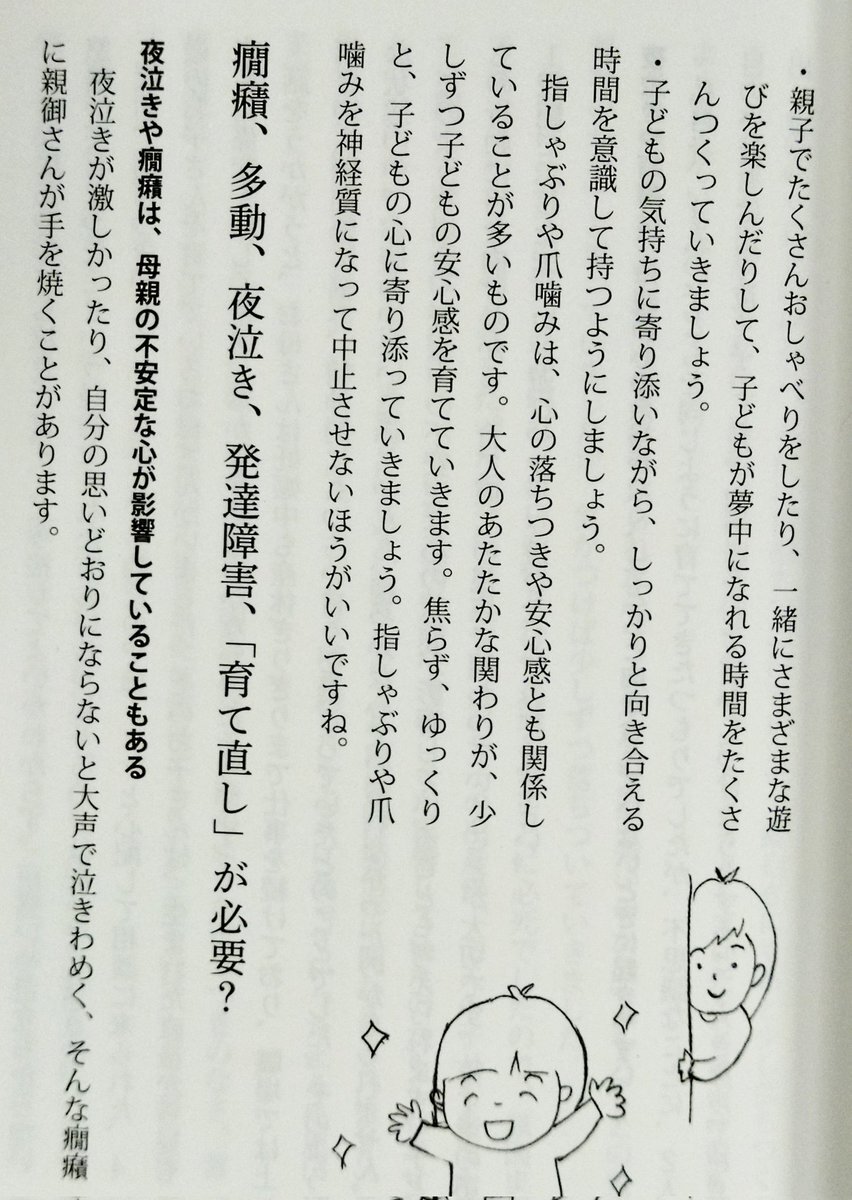 ・親子でたくさんおしゃべりをしたり、一緒にさまざまな遊
びを楽しんだりして、子どもが夢中になれる時間をたくさ
んつくっていきましょう。
・子どもの気持ちに寄り添いながら、しっかりと向き合える
時間を意識して持つようにしましょう。
指しゃぶりや爪噛みは、心の落ちつきや安心感とも関係し
ていることが多いものです。大人のあたたかな関わりが、少
しずつ子どもの安心感を育てていきます。焦らず、ゆっくり
と、子どもの心に寄り添っていきましょう。指しゃぶりや爪
噛みを神経質になって中止させないほうがいいですね。
癇癪、多動、夜泣き、発達障害、「育て直し」が必要?
夜泣きや癇癪は、母親の不安定な心が影響していることもある
夜泣きが激しかったり、自分の思いどおりにならないと大声で泣きわめく、そんな癇癪
に親御さんが手を焼くことがあります。